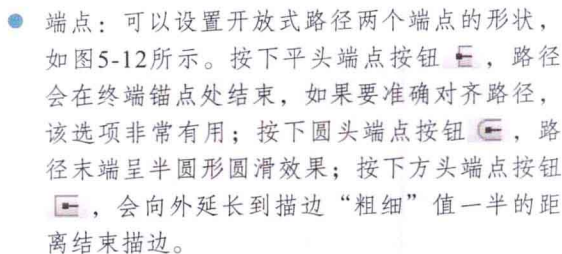 端点：可以设置开放式路径两个端点的形状，
如图5-12所示。按下平头端点按钮，路径
会在终端锚点处结束，如果要准确对齐路径，
该选项非常有用；按下圆头端点按钮，路
径末端呈半圆形圆滑效果；按下方头端点按钮
，会向外延长到描边“粗细”值一半的距
离结束描边。